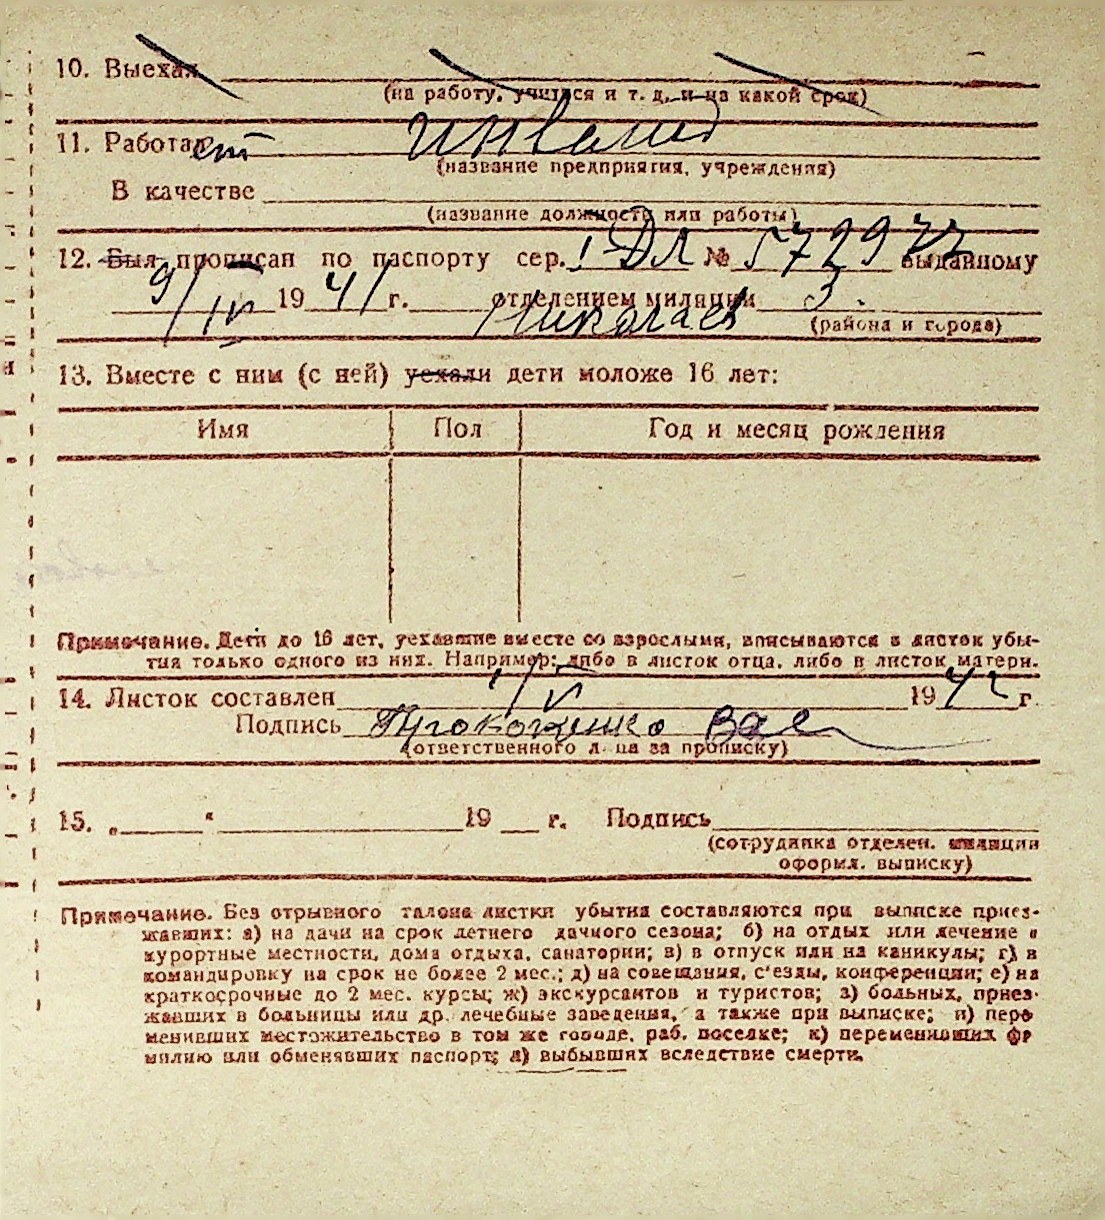 10. Выехал
(на работу, учиться и т. д. и на какой срок)
11. Работает инвалид
(название предприятия, учреждения)
В качестве
(название должности или работы)
12. Был прописан по паспорту сер. I ДЛ № 572977 выданному
9/IV 1941 г. отделением милиции 3.
Николаев (района и города)
13. Вместе с ним (с ней) уехали дети моложе 16 лет:
Имя Пол Год и месяц рождения
Примечание. Дети до 16 лет, уехавшие вместе со взрослыми, вписываются в листок убы-
тия только одного из них. Например: либо в листок отца, либо в листок матери.
14. Листок составлен 1942 г.
Подпись
(ответственного лица за прописку)
15. „ “ 19 г. Подпись
(сотрудника отделен. милиции
оформл. выписку)
Примечание. Без отрывного талона листки убытия составляются при выписке приез-
жавших: а) на дачи на срок летнего дачного сезона; б) на отдых или лечение в
курортные местности, дома отдыха, санатории; в) в отпуск или на каникулы; г) в
командировку на срок не более 2 мес.; д) на совещания, с'езды, конференции; е) на
краткосрочные до 2 мес. курсы; ж) экскурсантов и туристов; з) больных, приез-
жавших в больницы или др. лечебные заведения, а также при выписке; и) пере
менивших местожительство в том же городе, раб. поселке; к) переменивших фа
милию или обменявших паспорт; л) выбывших вследствие смерти.